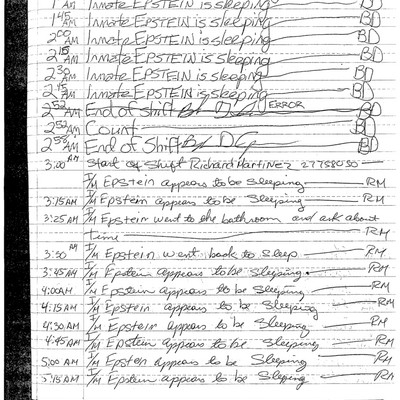 1 AM Inmate EPSTEIN is sleeping BD
1 45 AM Inmate EPSTEIN is sleeping BD
2 00 AM Inmate EPSTEIN is sleeping BD
2 15 AM Inmate EPSTEIN is sleeping BD
2 30 AM Inmate EPSTEIN is sleeping BD
2 45 AM Inmate EPSTEIN is sleeping BD
2 52 AM End of Shift ERROR BD
2 52 AM Count BD
2 56 AM End of Shift BD
3:00 AM Start of Shift Richard Martinez 27758050
I/M Epstein appears to be sleeping RM
3:15 AM I/M Epstein appears to be sleeping RM
3:25 AM I/M Epstein went to the bathroom and ask about
time RM
3:30 AM I/M Epstein went back to sleep RM
3:45 AM I/M Epstein appears to be sleeping. RM
4:00 AM I/M Epstein appears to be sleeping RM
4:15 AM I/M Epstein appears to be sleeping RM
4:30 AM I/M Epstein appears to be sleeping RM
4:45 AM I/M Epstein appears to be sleeping RM
5:00 AM I/M Epstein appears to be sleeping RM
5:15 AM I/M Epstein appears to be sleeping RM